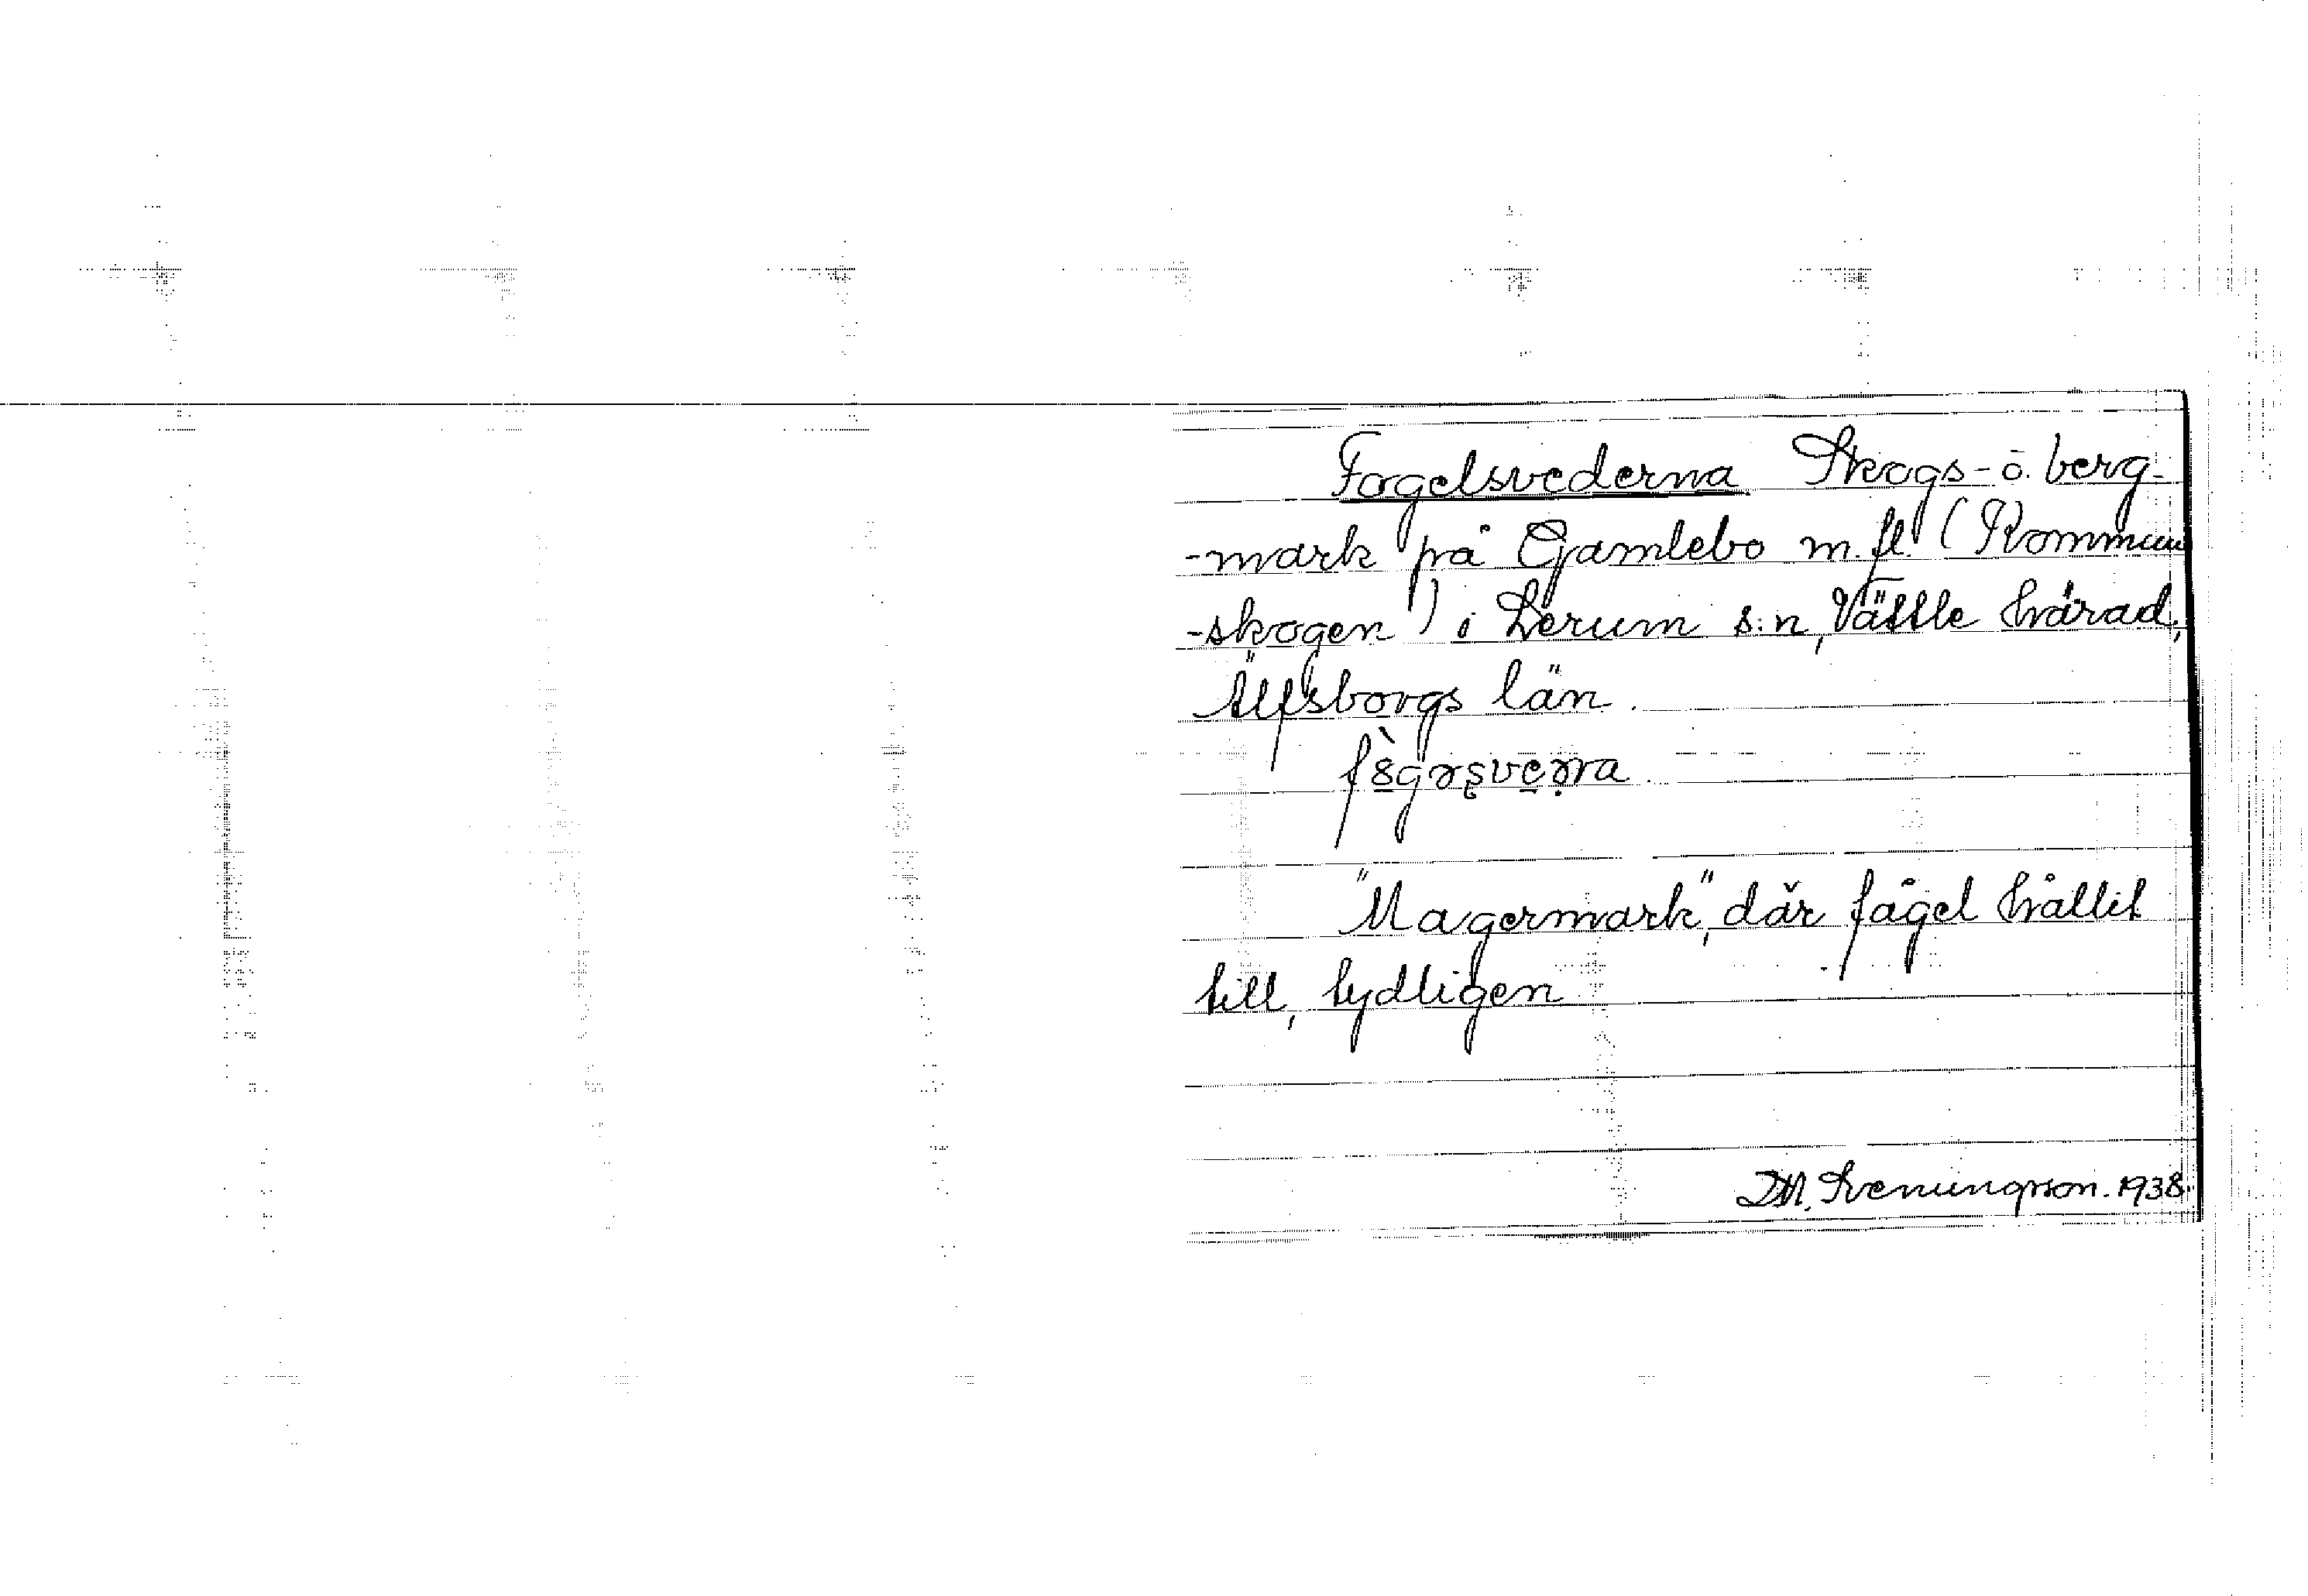 Fogelsvederna Skogs- o. berg-
-mark på Gamlebo m.fl. (Kommun
-skogen) i Lerum s:n, Vättle härad,
Älfsborgs län.
"Magermark", där fågel hållit
till, tydligen
D.M. Svenungsson. 1938.